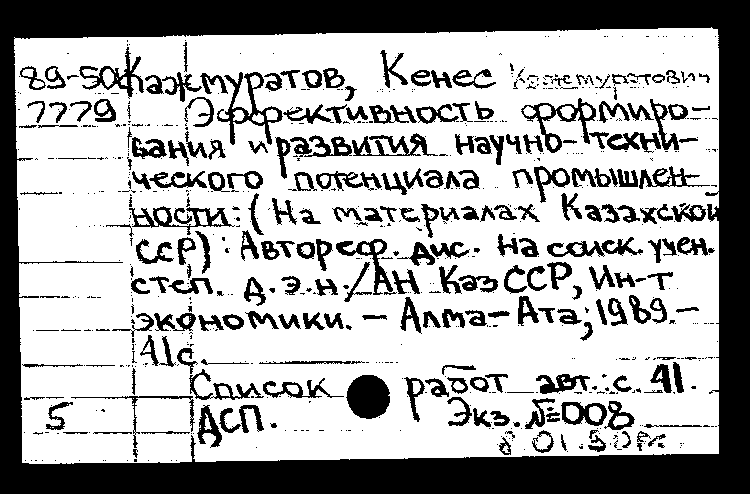 89-50 Кажмуратов, Кенес Кажмуратович
7779 Эффективность формиро-
вания и развития научно-техни-
ческого потенциала промышлен-
ности: (На материалах Казахской
ССР): Автореф. дис. на соиск. учен.
степ. д.э.н./АН КазССР, Ин-т
экономики. – Алма-Ата, 1989.–
41с.
Список работ авт.: с. 41.
5 ДСП. Экз. №008.
8.01.90